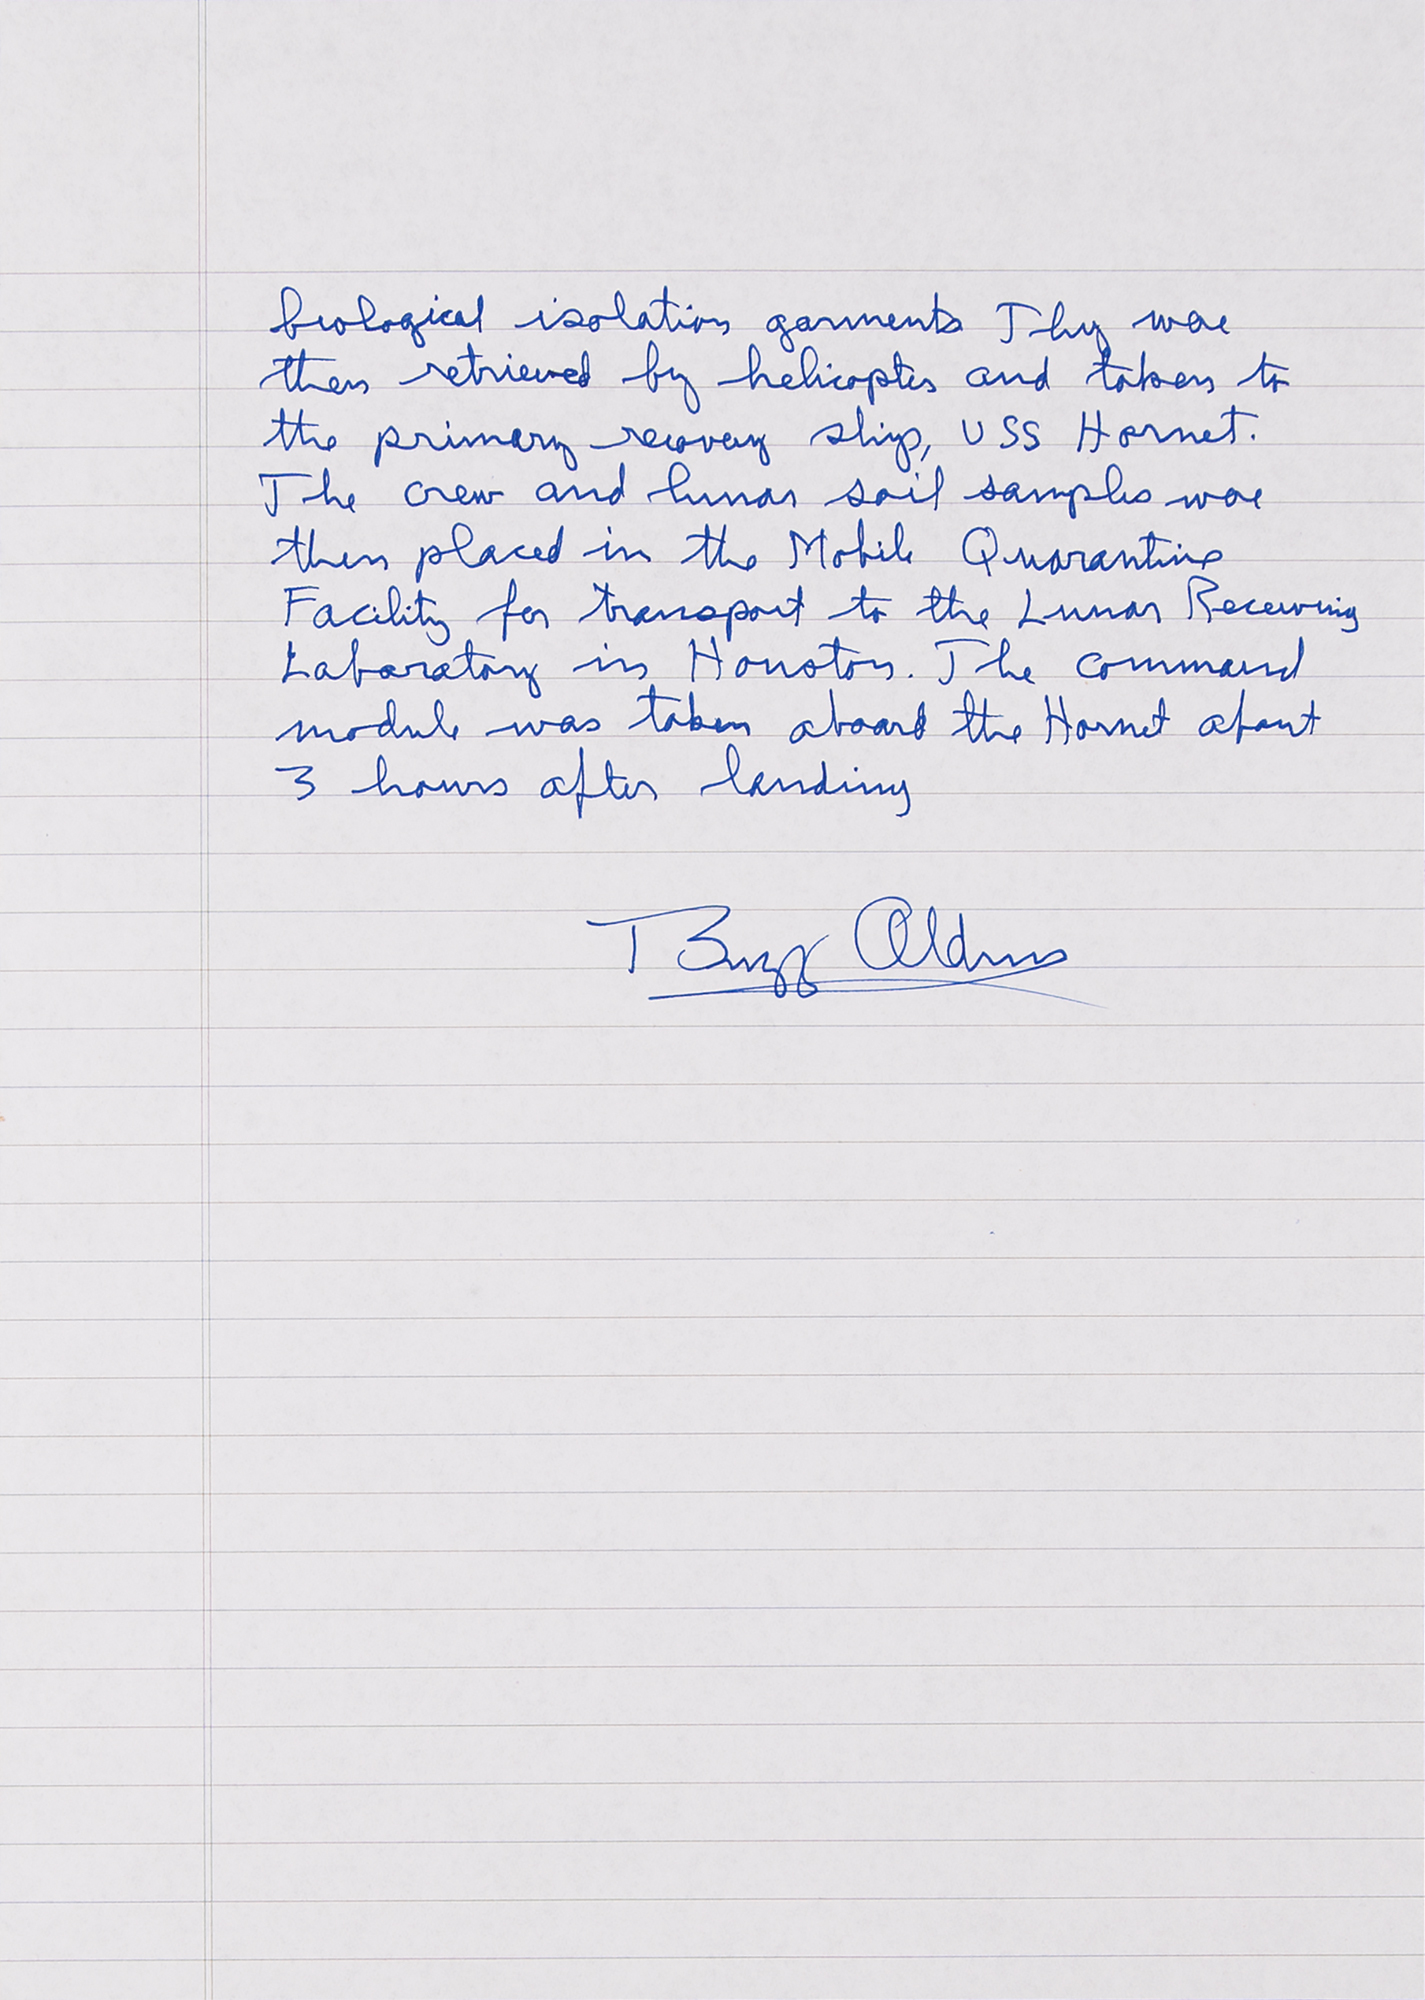 biological isolation garments They were
then retrieved by helicopter and taken to
the primary recovery ship, USS Hornet.
The crew and lunar soil samples were
then placed in the Mobile Quarantine
Facility for transport to the Lunar Receiving
Laboratory in Houston. The command
module was taken aboard the Hornet about
3 hours after landing
Buzz Aldrin